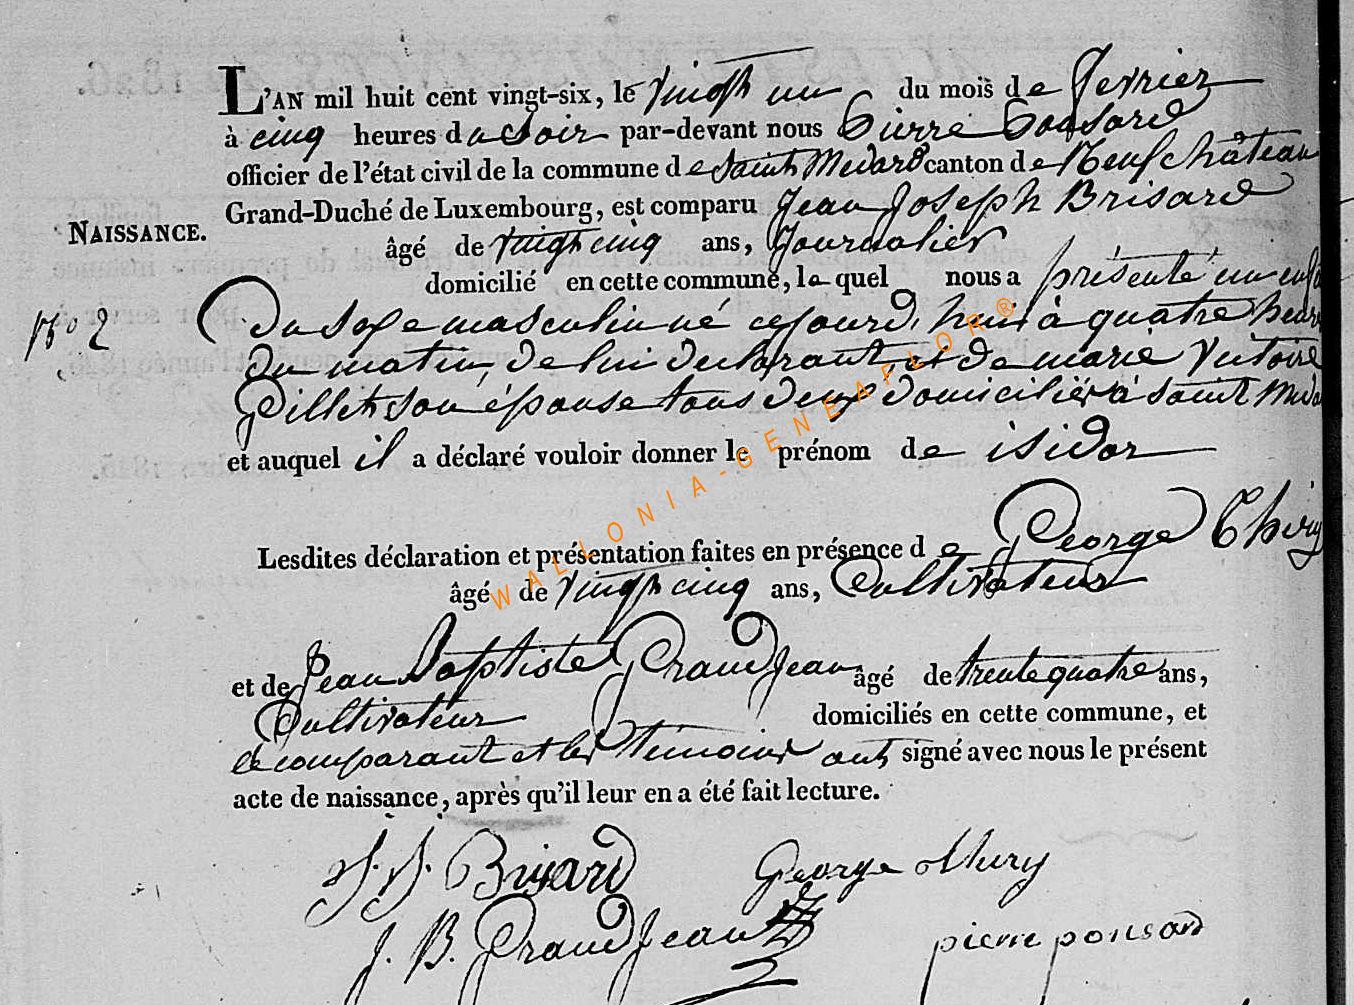 L'AN mil huit cent vingt-six, le vingt un du mois de fevrier
à cinq heures du soir par-devant nous Pierre Ponsard
officier de l'état civil de la commune de Saint Medard canton de Neufchâteau
Grand-Duché de Luxembourg, est comparu Jean Joseph Brisard
NAISSANCE.
âgé de vingt cinq ans, Journalier
domicilié en cette commune, le quel nous a présenté un enfa
No 2
Du sexe masculin né cejourd'hui à quatre heures
du matin, de lui declarant, et de marie Victoire
Gillet son épouse tous deux domiciliés à saint Meda
et auquel il a déclaré vouloir donner le prénom de isidor
Lesdites déclaration et présentation faites en présence de George Thiry
âgé de vingt cinq ans, Cultivateur
et de Jean Baptiste Grandjean âgé de trente quatre ans,
Cultivateur domiciliés en cette commune, et
le comparant et les témoins ont signé avec nous le présent
acte de naissance, après qu'il leur en a été fait lecture.
J. J. Brisard George thiry
J. B. Grandjean pierre ponsard
WALLONIA-GENEAFLOR®